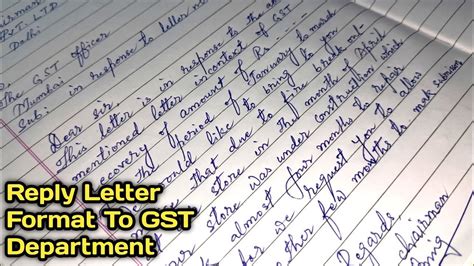 chairman
PvT. LTD
Delhi
The GST officer
Mumbai
Sub: in response to letter no
Dear sir,
This letter is in response to the above
mentioned letter in context of GST
recovery of amount of Rs ......
The period of January to march
would like to bring to your
that due to fire break out
store in the month of April
store was under construction which
almost four months to repair
for we request you to allow
other few months to submission
Regards,
chairman
Reply Letter
Format To GST
Department